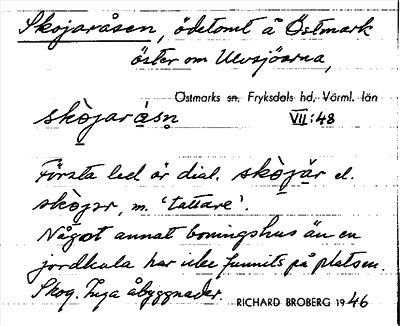 Skojaråsen, ödetomt å Östmark
öster om Ulvsjöarna,
Östmarks sn, Fryksdals hd, Värml. län
skòjaråsn̥ VII:48
Första led är dial. skòjär el.
skòjər, m. 'tattare'.
Något annat boningshus än en
jordkula har icke funnits på platsen.
Skog. Inga åbyggnader.
RICHARD BROBERG 1946